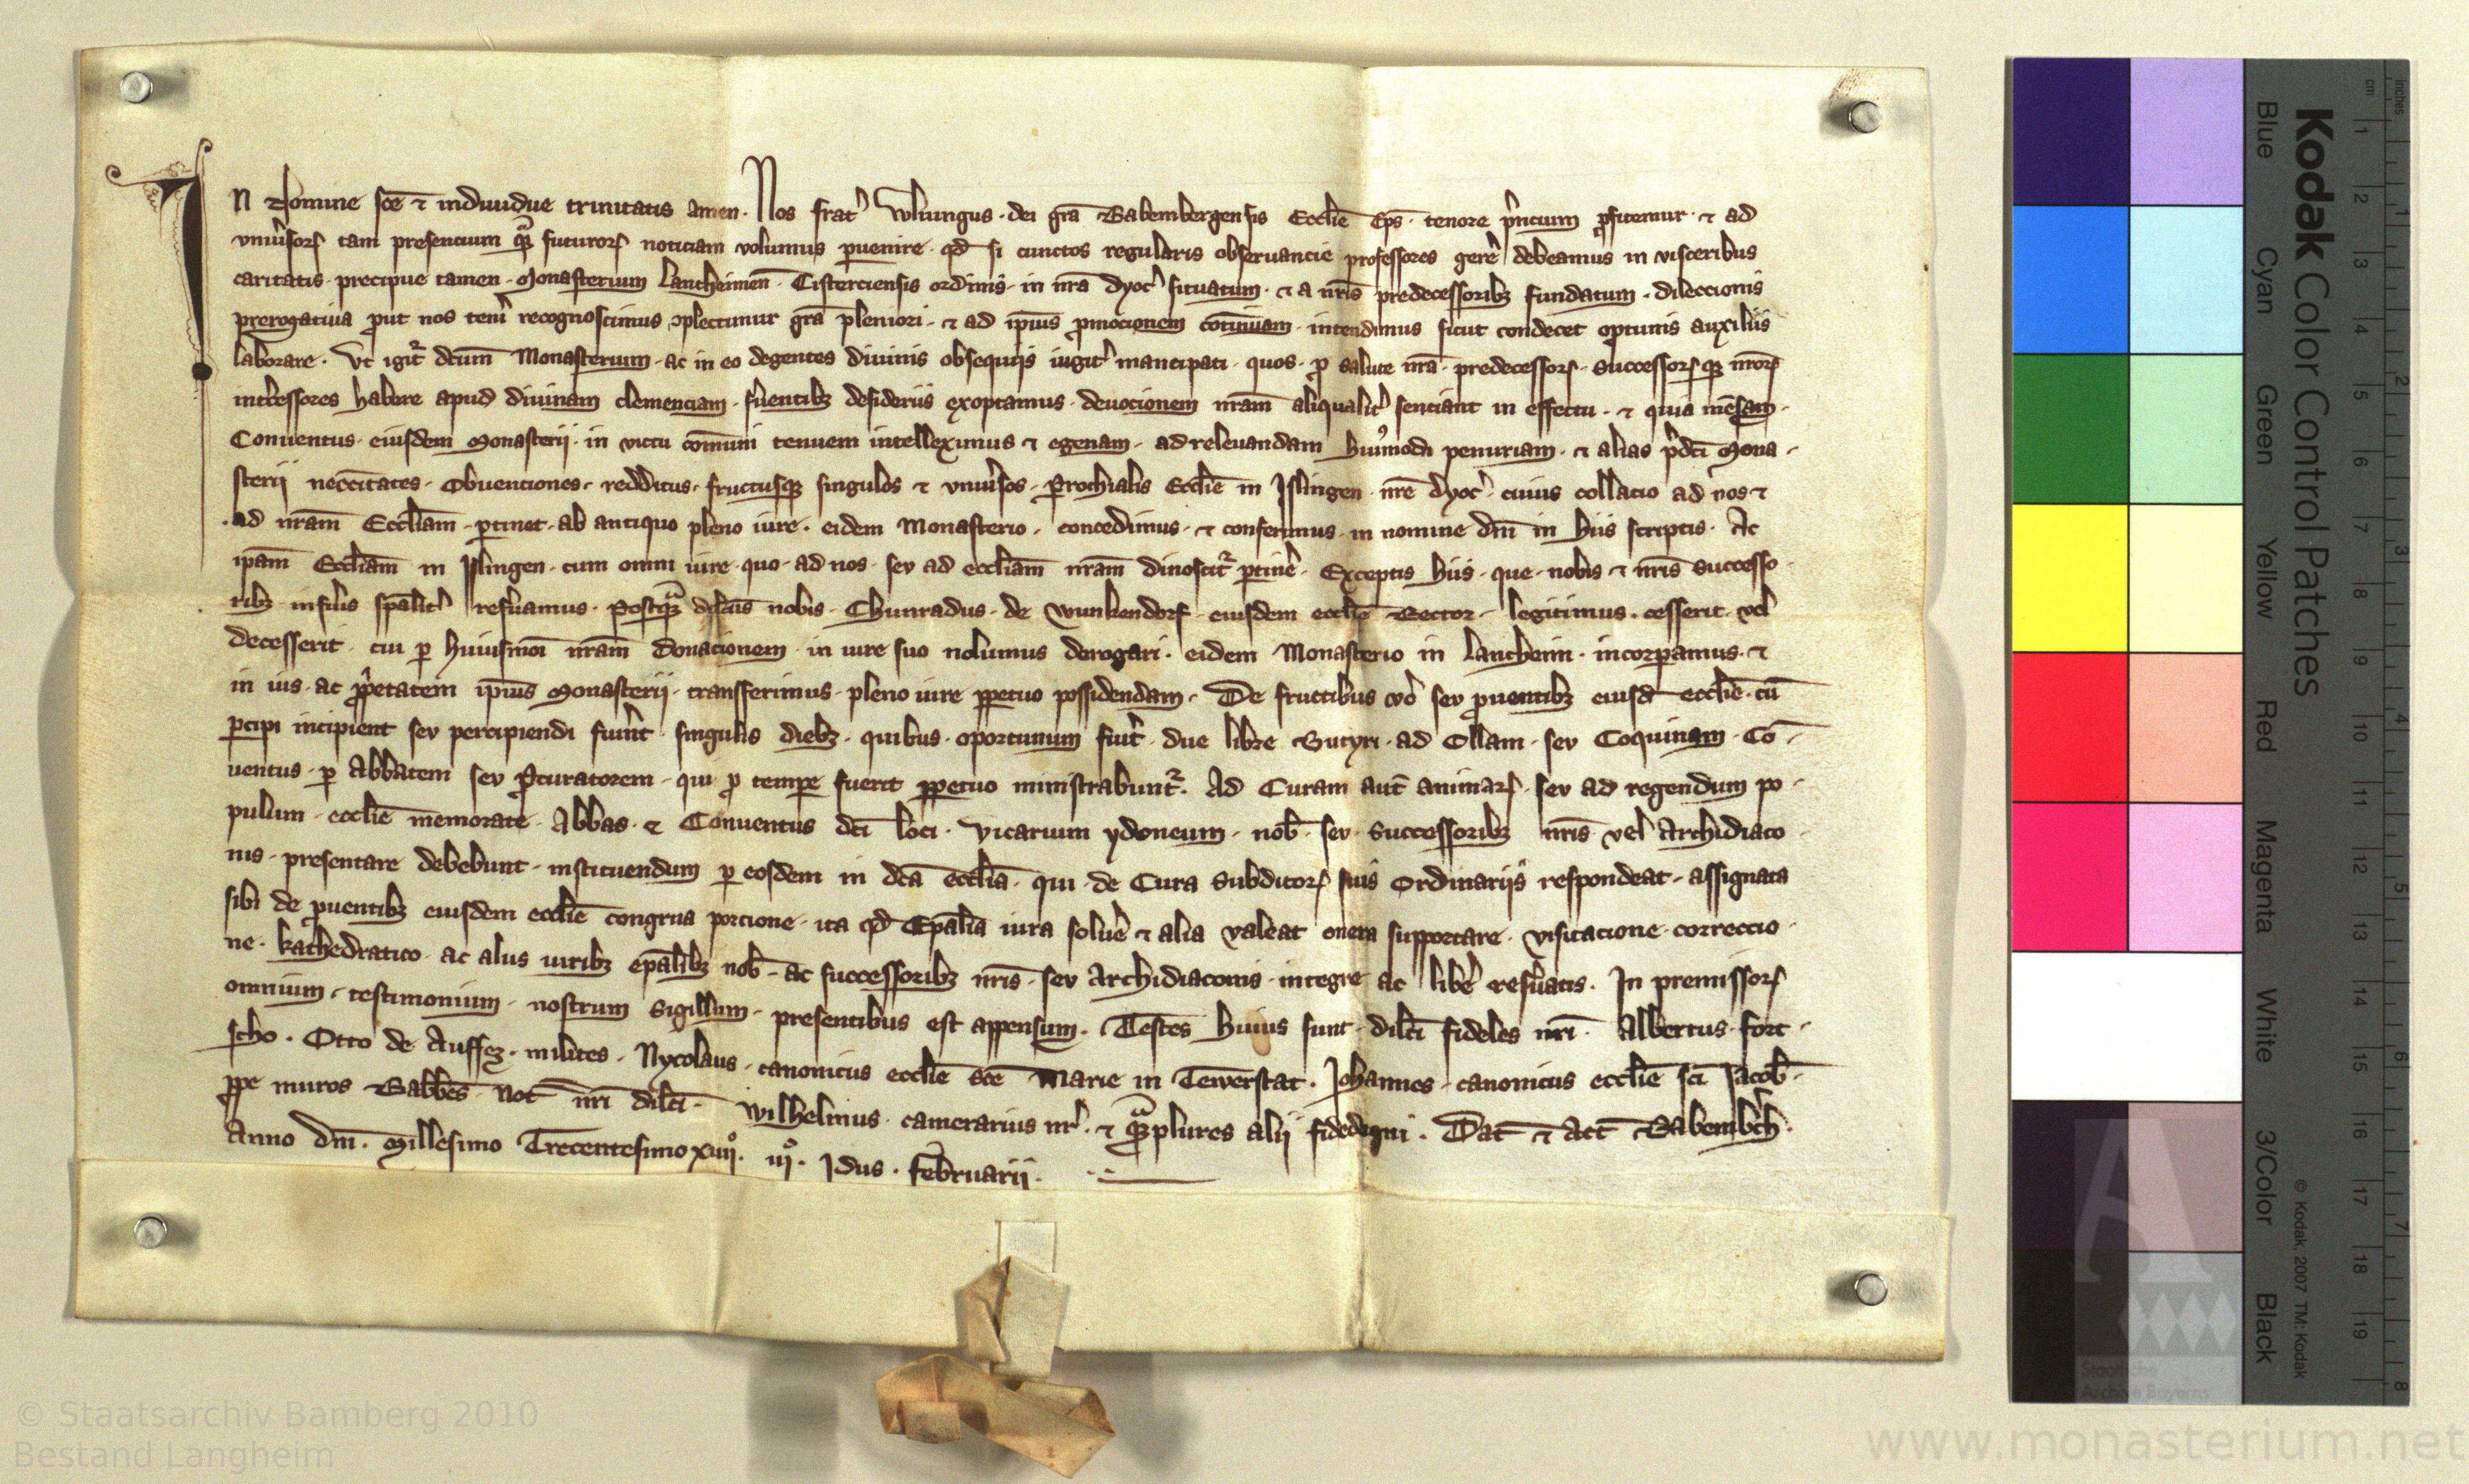 IN Nomine sce̅ ⁊ indiuidue trinitatis amen. Nos frat' Wluingus. dei gra̅ Babembergensis Eccl̅ie Ep̅s. tenore p'ncium p̱fitemur. ⁊ ad
vniu'soꝝ tam presencium qᵃ̅ꝫ futuroꝝ noticiam volumus p̱uenire. qd̅ si cunctos regularis obseruancie professores ger'e debeamus in visceribus
caritatis. precipue tamen. Monasterium Lancheimen̅. Cisterciensis ordinis. in nr̅a dyoc' situatum. ⁊ a nr̅is predecessoribꝫ fundatum. dileccionis
prerogatiua put nos tene'i recognoscimus ꝯplectimur gr̅a pleniori. ⁊ ad ip̅ius p̱mocionem co̅tinuam. intendimus sicut condecet optimis auxiliis
laborare. Vt igit' dc̅um Monasterium. ac in eo degentes diuinis obsequijs iugit' mancipati. quos. ꝓ salute nr̅a. predecessoꝝ. Successoꝝqꝫ nr̅oꝝ
int'cessores habere apud diuinam clemenciam. fu'entibꝫ desideriis exoptamus. deuocionem nr̅am aliqualit' senciant in effectu. ⁊ quia me̅sam.
Conuentus. eiusdem Monasterij. in victu co̅muni tenuem intelleximus ⁊ egenam. ad releuandam hui'modi penuriam. ⁊ alias p'dc̅i Mona-
sterij necc̅itates. Obuenciones. redditus. fructusqꝫ singulos ⁊ vniu'sos. p̱rochialis Eccl̅ie in Jslingen. nr̅e dyoc'. cuius collacio ad nos ⁊
ad nr̅am Eccl̅iam. p̱tinet. ab antiquo pleno iure. eidem Monasterio. concedimus. ⁊ conferimus. in nomine dn̅i in hiis scriptis. Ac
ip̅am Eccl̅iam in Jslingen. cum omni iure. quo. ad nos. seu ad eccl̅iam nr̅am dinoscit' p̱tine'. Exceptis hiis. que. nobis ⁊ nr̅is Successo-
ribꝫ infr̅is sp̅alit' resu'amus. Postqᵃ̅ꝫ dilc̅us nobis. Chunradus. de Wunkendorf. eiusdem eccl̅ie Rector. legitimus. cesserit. vel
decesserit. cui p̱ huiusmoi nr̅am donacionem. in iure suo nolumus derogari. eidem Monasterio in Lancheim. incorp̱amus. ⁊
in ius. ac pp̱'etatem ip̅ius Monasterij. transferimus. pleno iure pp̱etuo possidendam. De fructibus vo' seu ꝓuentibꝫ eiusd̅ eccl̅ie. cu̅
p̱cipi incipient seu percipiendi fuer'nt. singulis diebꝫ. quibus. oportunum fu'it. due libre Butyri. ad Ollam. seu Coquinam. Co̅-
uentus. p̱ Abb̅atem seu ꝓcuratorem. qui ꝓ temp̱e fuerit pp̱etuo ministrabunt'. Ad Curam aut̅ animaꝝ. seu ad regendum po-
pulum. eccl̅ie memorate. Abbas. ⁊ Conuentus dc̅i loci. vicarium ydoneum. nob̅. seu Successoribꝫ nr̅is vel Archidiaco-
nis. presentare debebunt. instituendum p̱ eosdem in dc̅a eccl̅ia. qui. de Cura Subditoꝝ suis Ordinarijs respondeat. assignata
sibi de ꝓuentibꝫ eiusdem eccl̅ie congrua porcione. ita qd̅ Ep̅alia iura solue' ⁊ alia valeat onera supportare. visitacione. correccio-
ne. kathedratico. ac aliis iuribꝫ ep̅alibꝫ nob̅. ac successoribꝫ nr̅is. seu Archidiaconis. integre ac libe'e resu'atis. In premissoꝝ
omnium. testimonium. nostrum Sigillum. presentibus est appensum. Testes huius sunt. dilc̅i fideles nr̅i. Albertus. fort-
scho. Otto de Auffez. milites. Nycolaus. canonicus eccl̅ie Sc̅e Marie in Tewerstat. Johannes. canonicus eccl̅ie sc̅i Jacob̅.
pp̱e muros Babb̅es. Not̅ nr̅i dilc̅i. Wilhelmus. camerarius nr̅. ⁊ qᵃ̅ꝫplures alij fidedigni. Dat̅ ⁊ Act̅ Babemb'ch.
Anno dn̅i. Millesimo Trecentesimo xiiijº. iijº. Jdus. Februarij.
Kodak Color Control Patches
Blue Cyan Green Yellow Red Magenta White 3/Color Black
© Kodak, 2007 TM: Kodak
inches 1 2 3 4 5 6 7 8
cm 1 2 3 4 5 6 7 8 9 10 11 12 13 14 15 16 17 18 19
Staatliche
Archive Bayerns
© Staatsarchiv Bamberg 2010
Bestand Langheim
www.monasterium.net